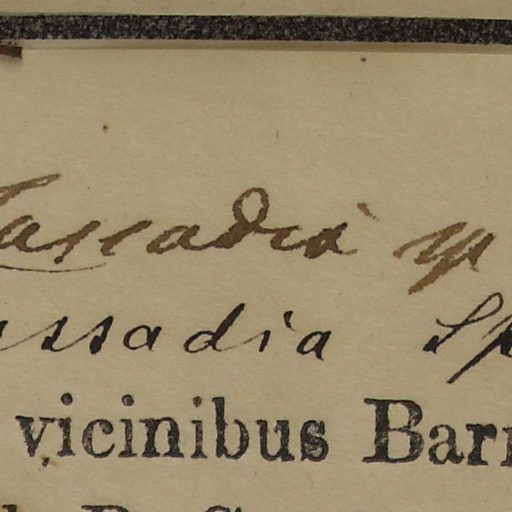 assadia sp
assadia Sp
vicinibus Barr